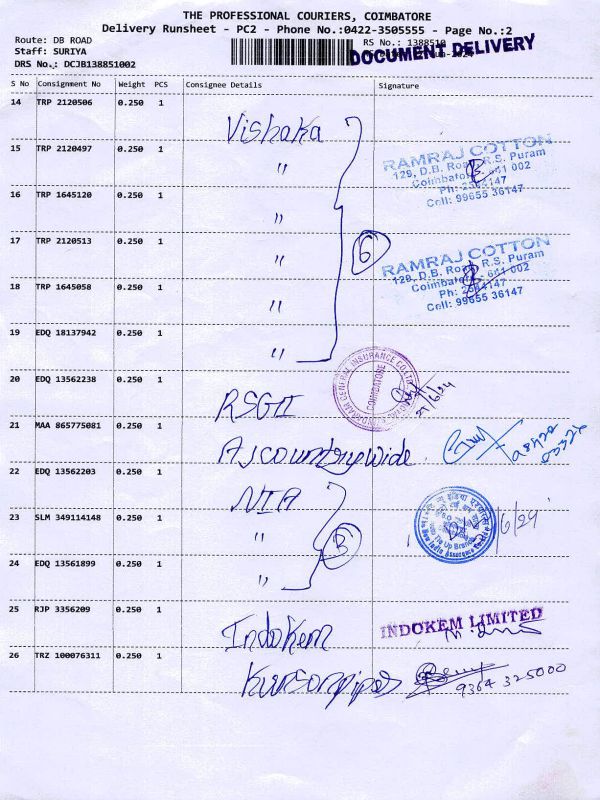 THE PROFESSIONAL COURIERS, COIMBATORE
Delivery Runsheet - PC2 - Phone No.:0422-3505555 - Page No.:2
Route: DB ROAD
RS No.: 1388510
DOCUMENT DELIVERY
Staff: SURIYA
DRS No.: DCJB138851002
S No Consignment No Weight PCS Consignee Details Signature
14 TRP 2120506 0.250 1 Vishaka
15 TRP 2120497 0.250 1 "
RAMRAJ COTTON
129, D.B. Road, R.S. Puram
Coimbatore - 641 002
Ph: 2544147
Cell: 99655 36147
16 TRP 1645120 0.250 1 "
17 TRP 2120513 0.250 1 " 6
RAMRAJ COTTON
129, D.B. Road, R.S. Puram
Coimbatore - 641 002
Ph: 2544147
Cell: 99655 36147
18 TRP 1645058 0.250 1 "
19 EDQ 18137942 0.250 1 "
20 EDQ 13562238 0.250 1 RSGI
GENERAL INSURANCE CO.LTD
COIMBATORE
21/6/24
21 MAA 865775081 0.250 1 AJ Countrywide
22 EDQ 13562203 0.250 1 NIA
23 SLM 349114148 0.250 1 " 3
/6/24
24 EDQ 13561899 0.250 1 "
25 RJP 3356209 0.250 1 Indokem
INDOKEM LIMITED
26 TRZ 100076311 0.250 1
9364 325000